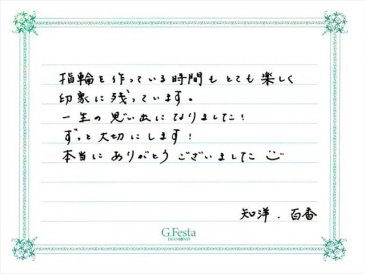 指輪を作っている時間もとても楽しく
印象に残っています。
一生の思い出になりました!
ずっと大切にします!
本当にありがとうございました
知洋. 百香
G.Festa
DIAMOND